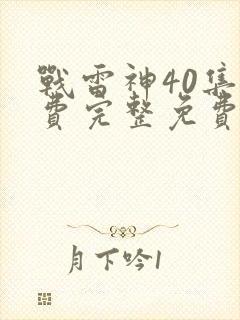 戰雷神40集
費完整免費
月下吟1